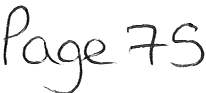 Page 75